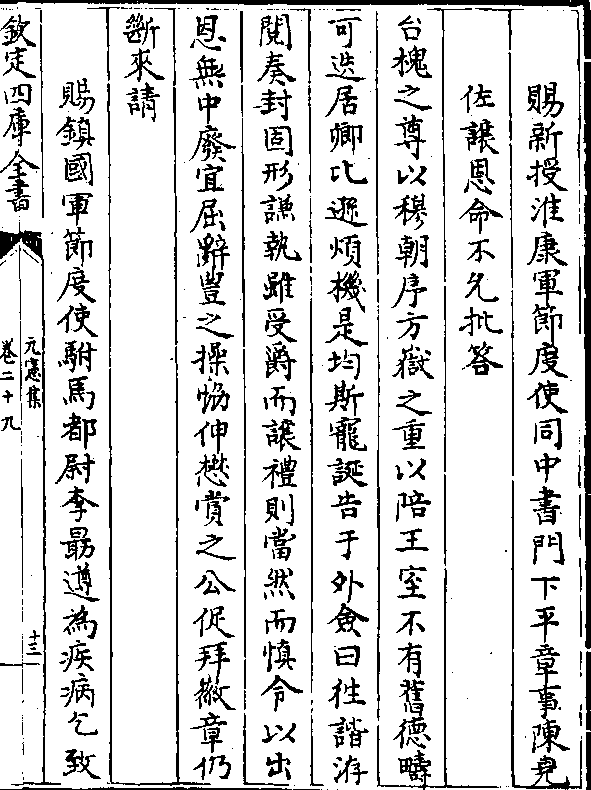 賜新授淮康軍節度使同中書門下平章事陳堯
佐讓恩命不允批答
台槐之尊以穆朝序方嶽之重以陪王室不有舊德疇
可迭居卿比遜煩機是均斯寵誕告于外僉曰往諧洊
閱奏封固形謙執雖受爵而讓禮則當然而慎令以出
恩無中廢宜屈辭豐之操恊伸懋賞之公促拜徽章仍
斷來請
賜鎮國軍節度使駙馬都尉李勗遵為疾病乞致
欽定四庫全書
元憲集
卷二十九
十三